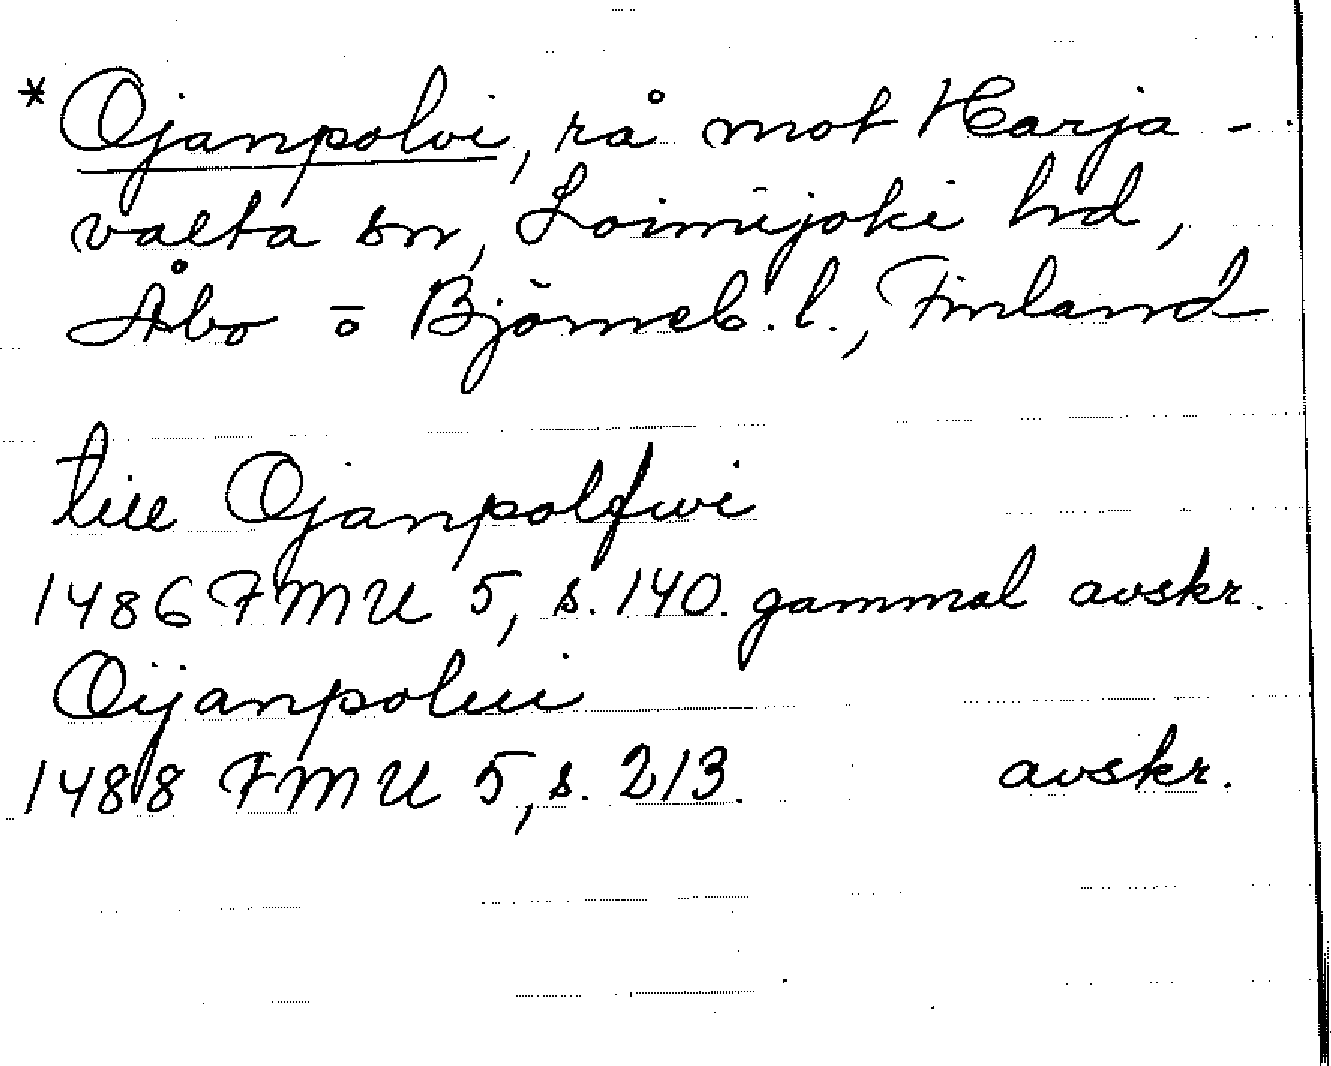 * Ojanpolvi, rå mot Harja-
valta sn, Loimijoki hd,
Åbo o Björneb. l., Finland
till Ojanpolfwi
1486 FMU 5, s. 140. gammal avskr.
Oijanpolui
1488 FMU 5, s. 213. avskr.